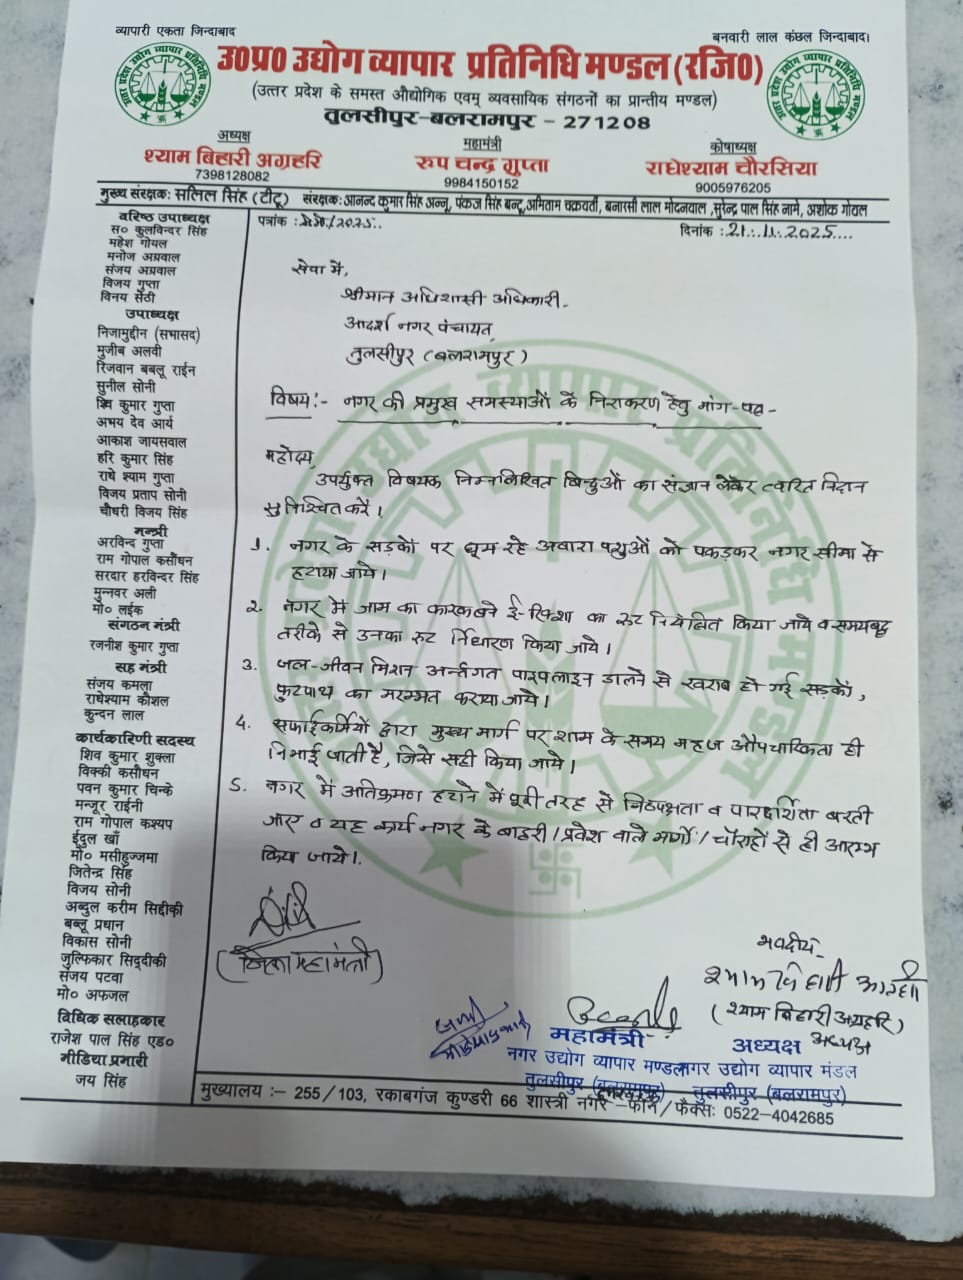 व्यापारी एकता जिन्दाबाद
बनवारी लाल कंछल जिन्दाबाद।
उ०प्र० उद्योग व्यापार प्रतिनिधि मण्डल (रजि०)
(उत्तर प्रदेश के समस्त औद्योगिक एवम् व्यवसायिक संगठनों का प्रान्तीय मण्डल)
तुलसीपुर-बलरामपुर - 271208
अध्यक्ष
श्याम बिहारी अग्रहरि
7398128082
महामंत्री
रुप चन्द्र गुप्ता
9984150152
कोषाध्यक्ष
राधेश्याम चौरसिया
9005976205
मुख्य संरक्षक: सलिल सिंह (टीटू) संरक्षक: आनन्द कुमार सिंह अन्नू, पंकज सिंह बन्टू, अमिताम चक्रवर्ती, बनारसी लाल मोदनवाल, सुरेन्द्र पाल सिंह नामे, अशोक गोयल
पत्रांक : /2025..
दिनांक : 21.11.2025
वरिष्ठ उपाध्यक्ष
स० कुलविन्दर सिंह
महेश गोयल
मनोज अग्रवाल
संजय अग्रवाल
विजय गुप्ता
विनय सेठी
उपाध्यक्ष
निजामुद्दीन (सभासद)
मुजीब अलवी
रिजवान बबलू राईन
सुनील सोनी
शिव कुमार गुप्ता
अभय देव आर्य
आकाश जायसवाल
हरि कुमार सिंह
राधे श्याम गुप्ता
विजय प्रताप सोनी
चौधरी विजय सिंह
मन्त्री
अरविन्द गुप्ता
राम गोपाल कसौंधन
सरदार हरविन्दर सिंह
मुन्नवर अली
मो० लईक
संगठन मंत्री
रजनीश कुमार गुप्ता
सह मंत्री
संजय कमला
राधेश्याम कौशल
कुन्दन लाल
कार्यकारिणी सदस्य
शिव कुमार शुक्ला
विक्की कसौधन
पवन कुमार चिन्के
मन्जूर राईनी
राम गोपाल कश्यप
ईदुल खाँ
मो० मसीहुज्जमा
जितेन्द्र सिंह
विजय सोनी
अब्दुल करीम सिद्दीकी
बब्लू प्रधान
विकास सोनी
जुल्फिकार सिद्दीकी
संजय पटवा
मो० अफजल
विधिक सलाहकार
राजेश पाल सिंह एड०
मीडिया प्रभारी
जय सिंह
सेवा में,
श्रीमान अधिशासी अधिकारी-
आदर्श नगर पंचायत,
तुलसीपुर (बलरामपुर)
विषय:- नगर की प्रमुख समस्याओं के निराकरण हेतु मांग-पत्र-
महोदय,
उपर्युक्त विषयक निम्नलिखित बिन्दुओं का संज्ञान लेकर त्वरित निदान
सुनिश्चित करें।
1. नगर के सड़कों पर घूम रहे अवारा पशुओं को पकड़कर नगर सीमा से
हटाया जाये।
2. नगर में जाम का कारक बने ई-रिक्शा का रुट नियंत्रित किया जाये व समयबद्ध
तरीके से उनका रुट निर्धारण किया जाये।
3. जल-जीवन मिशन अर्न्तगत पाइपलाइन डालने से खराब हो गई सड़कों,
फुटपाथ का मरम्मत कराया जाये।
4. सफाईकर्मियों द्वारा मुख्य मार्ग पर शाम के समय महज औपचारिकता ही
निभाई जाती है, जिसे सही किया जाये।
5. नगर में अतिक्रमण हटाने में पूरी तरह से निष्पक्षता व पारदर्शिता बरती
जाए व यह कार्य नगर के बाहरी/प्रवेश वाले मार्गों/चौराहों से ही आरम्भ
किया जाये।
(जिला महामंत्री)
भवदीय-
श्याम बिहारी अग्रहरी
(श्याम बिहारी अग्रहरि)
अध्यक्ष
महामंत्री
नगर उद्योग व्यापार मण्डल
तुलसीपुर (बलरामपुर)
अध्यक्ष
नगर उद्योग व्यापार मंडल
तुलसीपुर (बलरामपुर)
मुख्यालय :- 255/103, रकाबगंज कुण्डरी 66 शास्त्री नगर -फोन/फैक्स: 0522-4042685